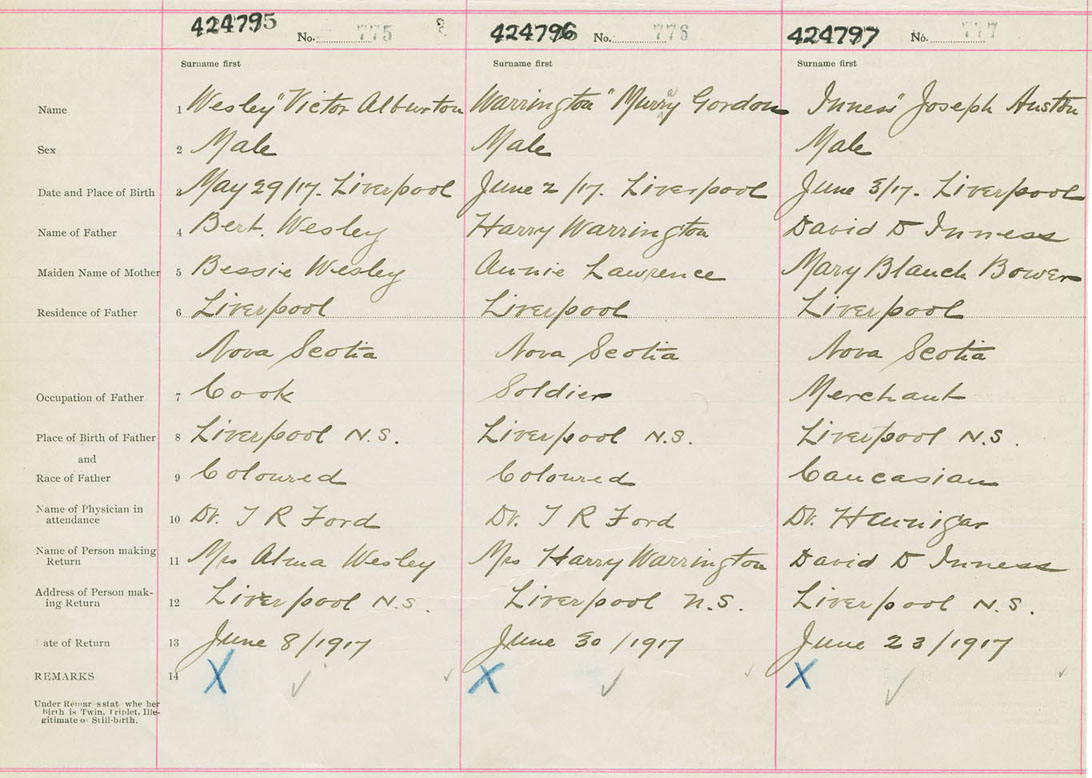 424795 No. 775 424796 No. 776 424797 No. 777
Surname first Surname first Surname first
Name 1 Wesley "Victor Alburton Warrington" Murray Gordon Inness" Joseph Austin
Sex 2 Male Male Male
Date and Place of Birth 3 May 29/17. Liverpool June 2/17. Liverpool June 3/17. Liverpool
Name of Father 4 Bert. Wesley Harry Warrington David D Inness
Maiden Name of Mother 5 Bessie Wesley Annie Lawrence Mary Blanch Bower
Residence of Father 6 Liverpool Liverpool Liverpool
Nova Scotia Nova Scotia Nova Scotia
Occupation of Father 7 Cook Soldier Merchant
Place of Birth of Father 8 Liverpool N.S. Liverpool N.S. Liverpool N.S.
and
Race of Father 9 Coloured Coloured Caucasian
Name of Physician in
attendance 10 Dr. T R Ford Dr. T R Ford Dr. Hennigar
Name of Person making
Return 11 Mrs Alma Wesley Mrs Harry Warrington David D Inness
Address of Person mak-
ing Return 12 Liverpool N.S. Liverpool N.S. Liverpool N.S.
ate of Return 13 June 8/1917 June 30/1917 June 23/1917
REMARKS 14 X X X
Under Remar s stat whe her
Birth is Twin, Triplet, Ille-
gitimate or Still-birth.